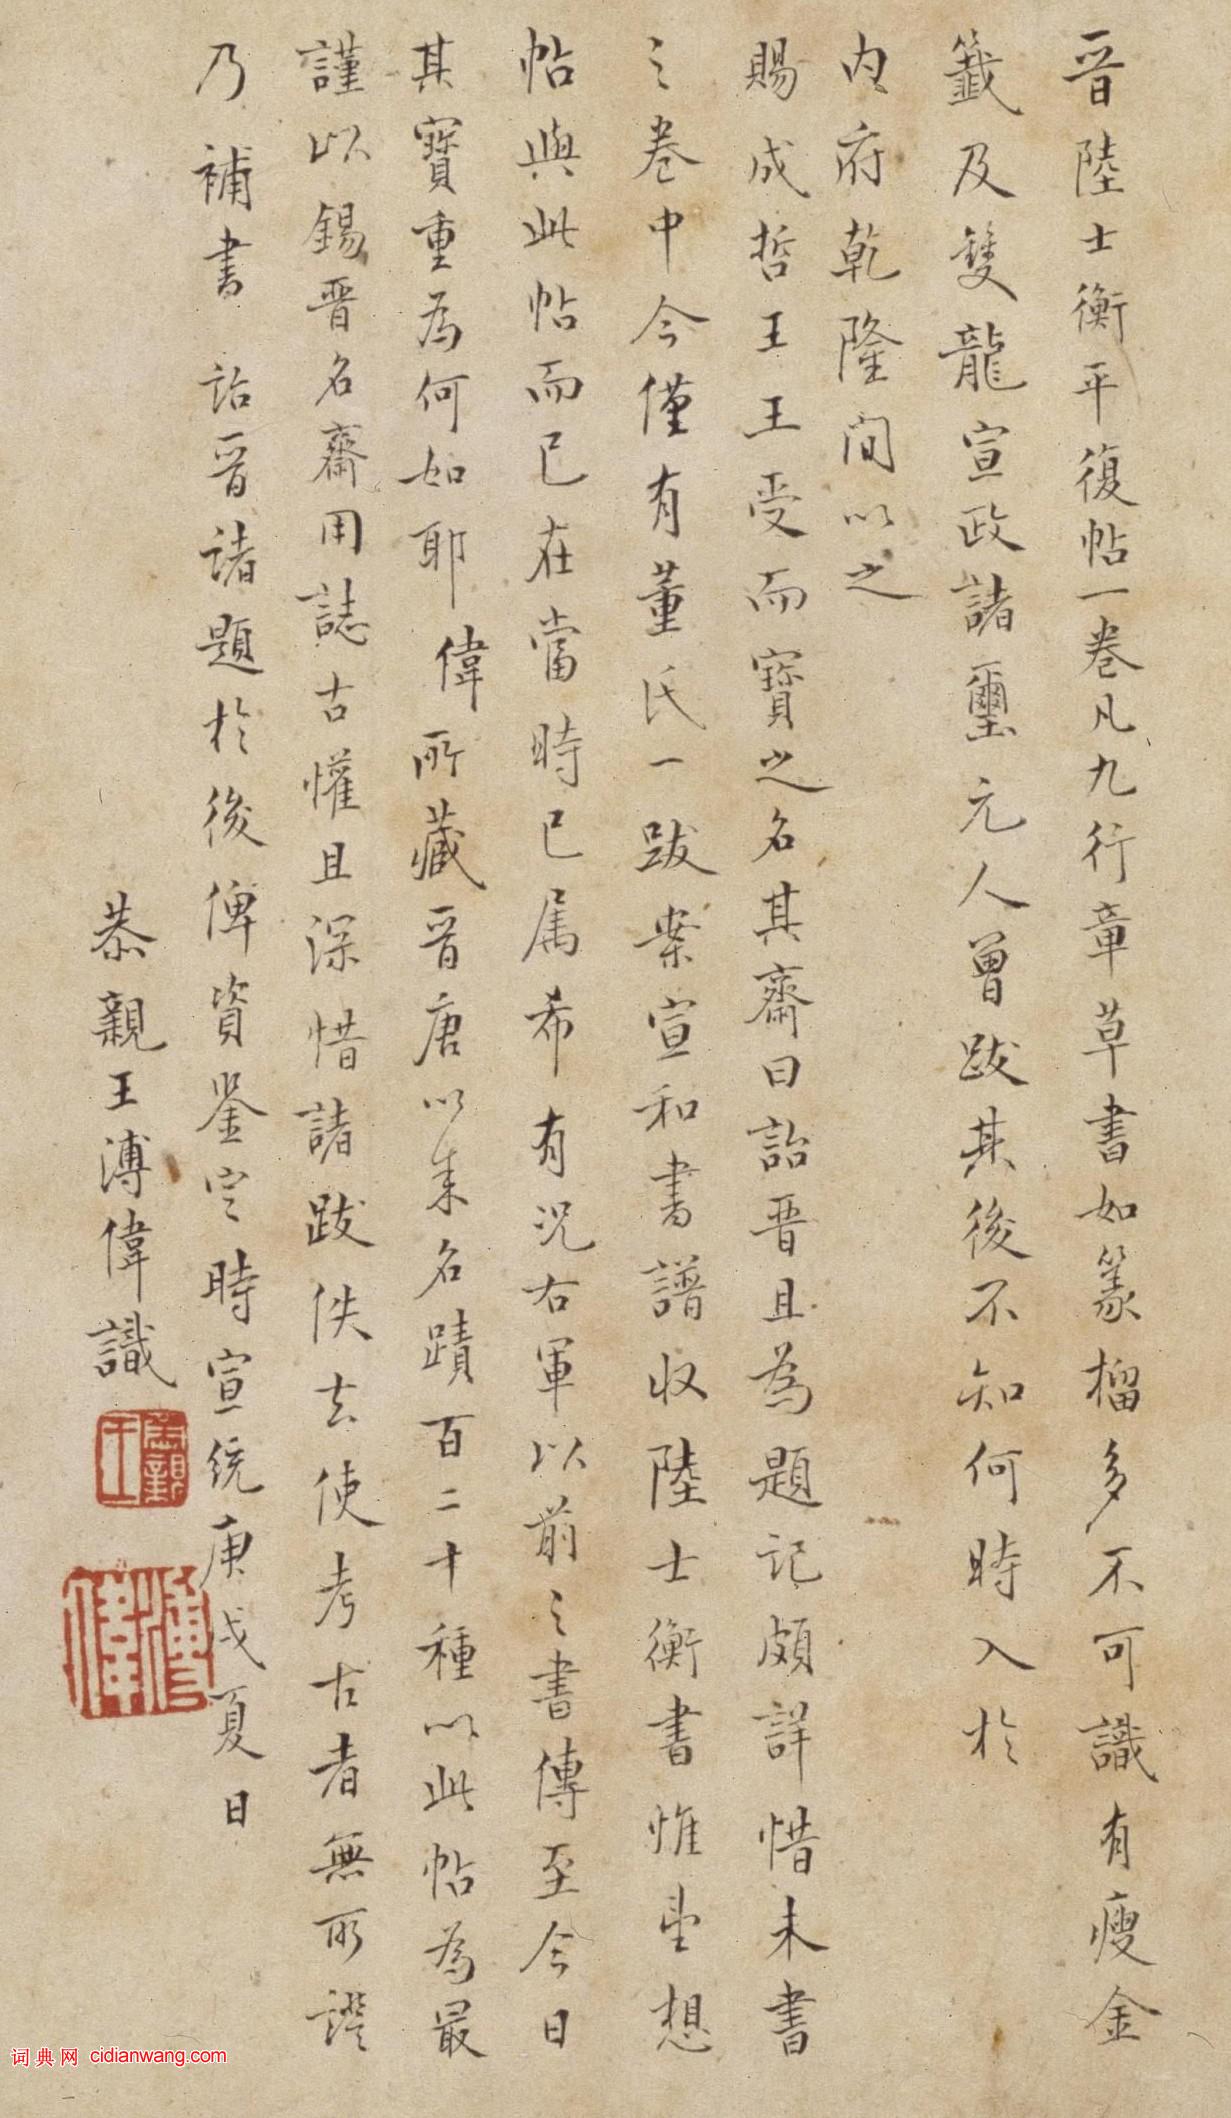 晉陸士衡平復帖一卷凡九行章草書如篆榴多不可識有瘦金
籤及雙龍宣政諸璽元人曾跋其後不知何時入於
內府乾隆間以之
賜成哲王王受而寶之名其齋曰詒晉且為題記頗詳惜未書
之卷中今僅有董氏一跋案宣和書譜收陸士衡書惟望想
帖與此帖而已在當時已属希有況右軍以前之書傳至今日
其寶重為何如耶偉所藏晉唐以來名蹟百二十種以此帖為最
謹以錫晉名齋用誌古懽且深惜諸跋佚去使考古者無所證
乃補書詒晉諸題於後俾資鉴定時宣統庚戌夏日
恭親王溥偉識
恭親王
溥偉
词典网 cidianwang.com